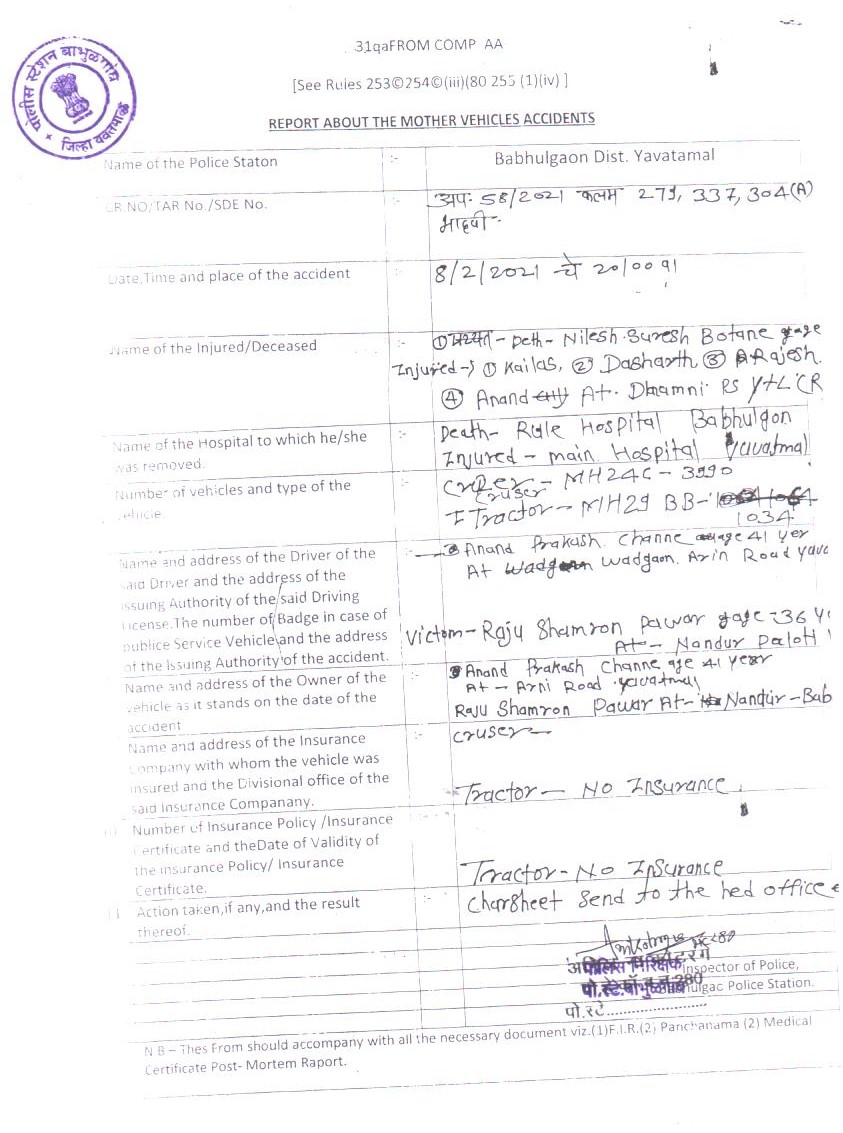 31qaFROM COMP AA
[See Rules 253©254©(iii)(80 255 (1)(iv) ]
REPORT ABOUT THE MOTHER VEHICLES ACCIDENTS
पोलीस स्टेशन बाभुळगांव
जिल्हा यवतमाळ
Name of the Police Staton :- Babhulgaon Dist. Yavatamal
CR.NO/TAR No./SDE No. :- अप: 58/2021 कलम 279, 337, 304(A)
भादवी.
Date,Time and place of the accident :- 8/2/2021 चे 20/00 वा
Name of the Injured/Deceased :- ① Deth- Nilesh Suresh Botane age
Injured-> ① Kailas, ② Dasharth ③ Rajesh.
④ Anand At. Dhamni PS YTL CR
Name of the Hospital to which he/she :- Death- Rule Hospital Babhulgon
was removed. Injured - main Hospital Yavatmal
Number of vehicles and type of the :- Cruser - MH24C - 3990
vehicle. Tractor - MH29 BB-
1034
Name and address of the Driver of the :- Anand Prakash. Channe age 41 yer
said Driver and the address of the At Wadgaon. Arin Road yava
issuing Authority of the said Driving
License.The number of Badge in case of
publice Service Vehicle and the address Victom- Raju Shamron pawar age-36 Y
of the Issuing Authority of the accident. At- Nandur
Name and address of the Owner of the Anand Prakash Channe age 41 year
vehicle as it stands on the date of the At - Arni Road yavatmal
accident Raju Shamron Pawar At- Nandur-Bab
Name and address of the Insurance :- cruser-
Company with whom the vehicle was
insured and the Divisional office of the
said Insurance Companany. Tractor- NO Insurance
Number of Insurance Policy /Insurance
Certificate and theDate of Validity of
the insurance Policy/ Insurance Tractor-No Insurance
Certificate.
Action taken,if any,and the result :- Charsheet send to the hed office
thereof.
पोलिस निरिक्षक Inspector of Police,
पो.स्टे.बाभुळगाव Police Station.
पो.स्टे.......................
N B – Thes From should accompany with all the necessary document viz.(1)F.I.R.(2) Panchanama (2) Medical
Certificate Post- Mortem Raport.